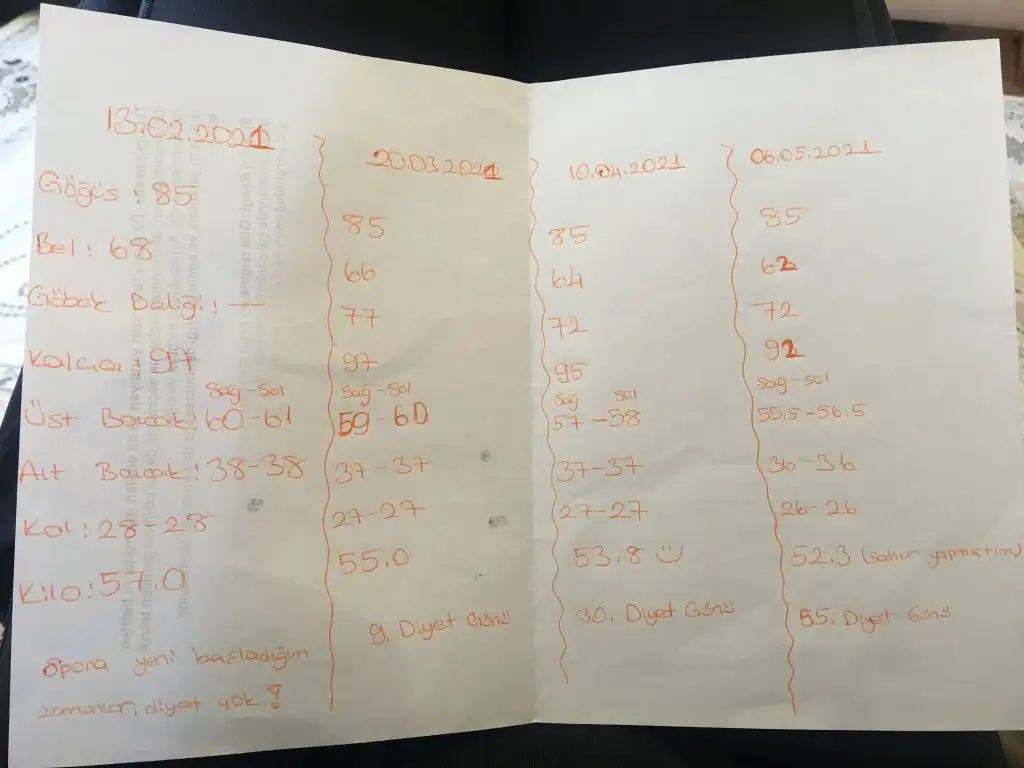 13.02.2021
Göğüs : 85
Bel : 68
Göbek Deliği : —
Kalça : 97
Sağ - Sol
Üst Bacak : 60-61
Alt Bacak : 38-38
Kol : 28-28
Kilo : 57.0
Spora yeni başladığım
zamanlar, diyet yok !
20.03.2021
85
66
77
97
Sağ - Sol
59-60
37-37
27-27
55.0
9. Diyet Günü
10.04.2021
85
64
72
95
Sağ Sol
57-58
37-37
27-27
53.8 :)
30. Diyet Günü
06.05.2021
85
62
72
92
Sağ - Sol
55.5-56.5
36-36
26-26
52.3 (sahur yapmıştım)
55. Diyet Günü